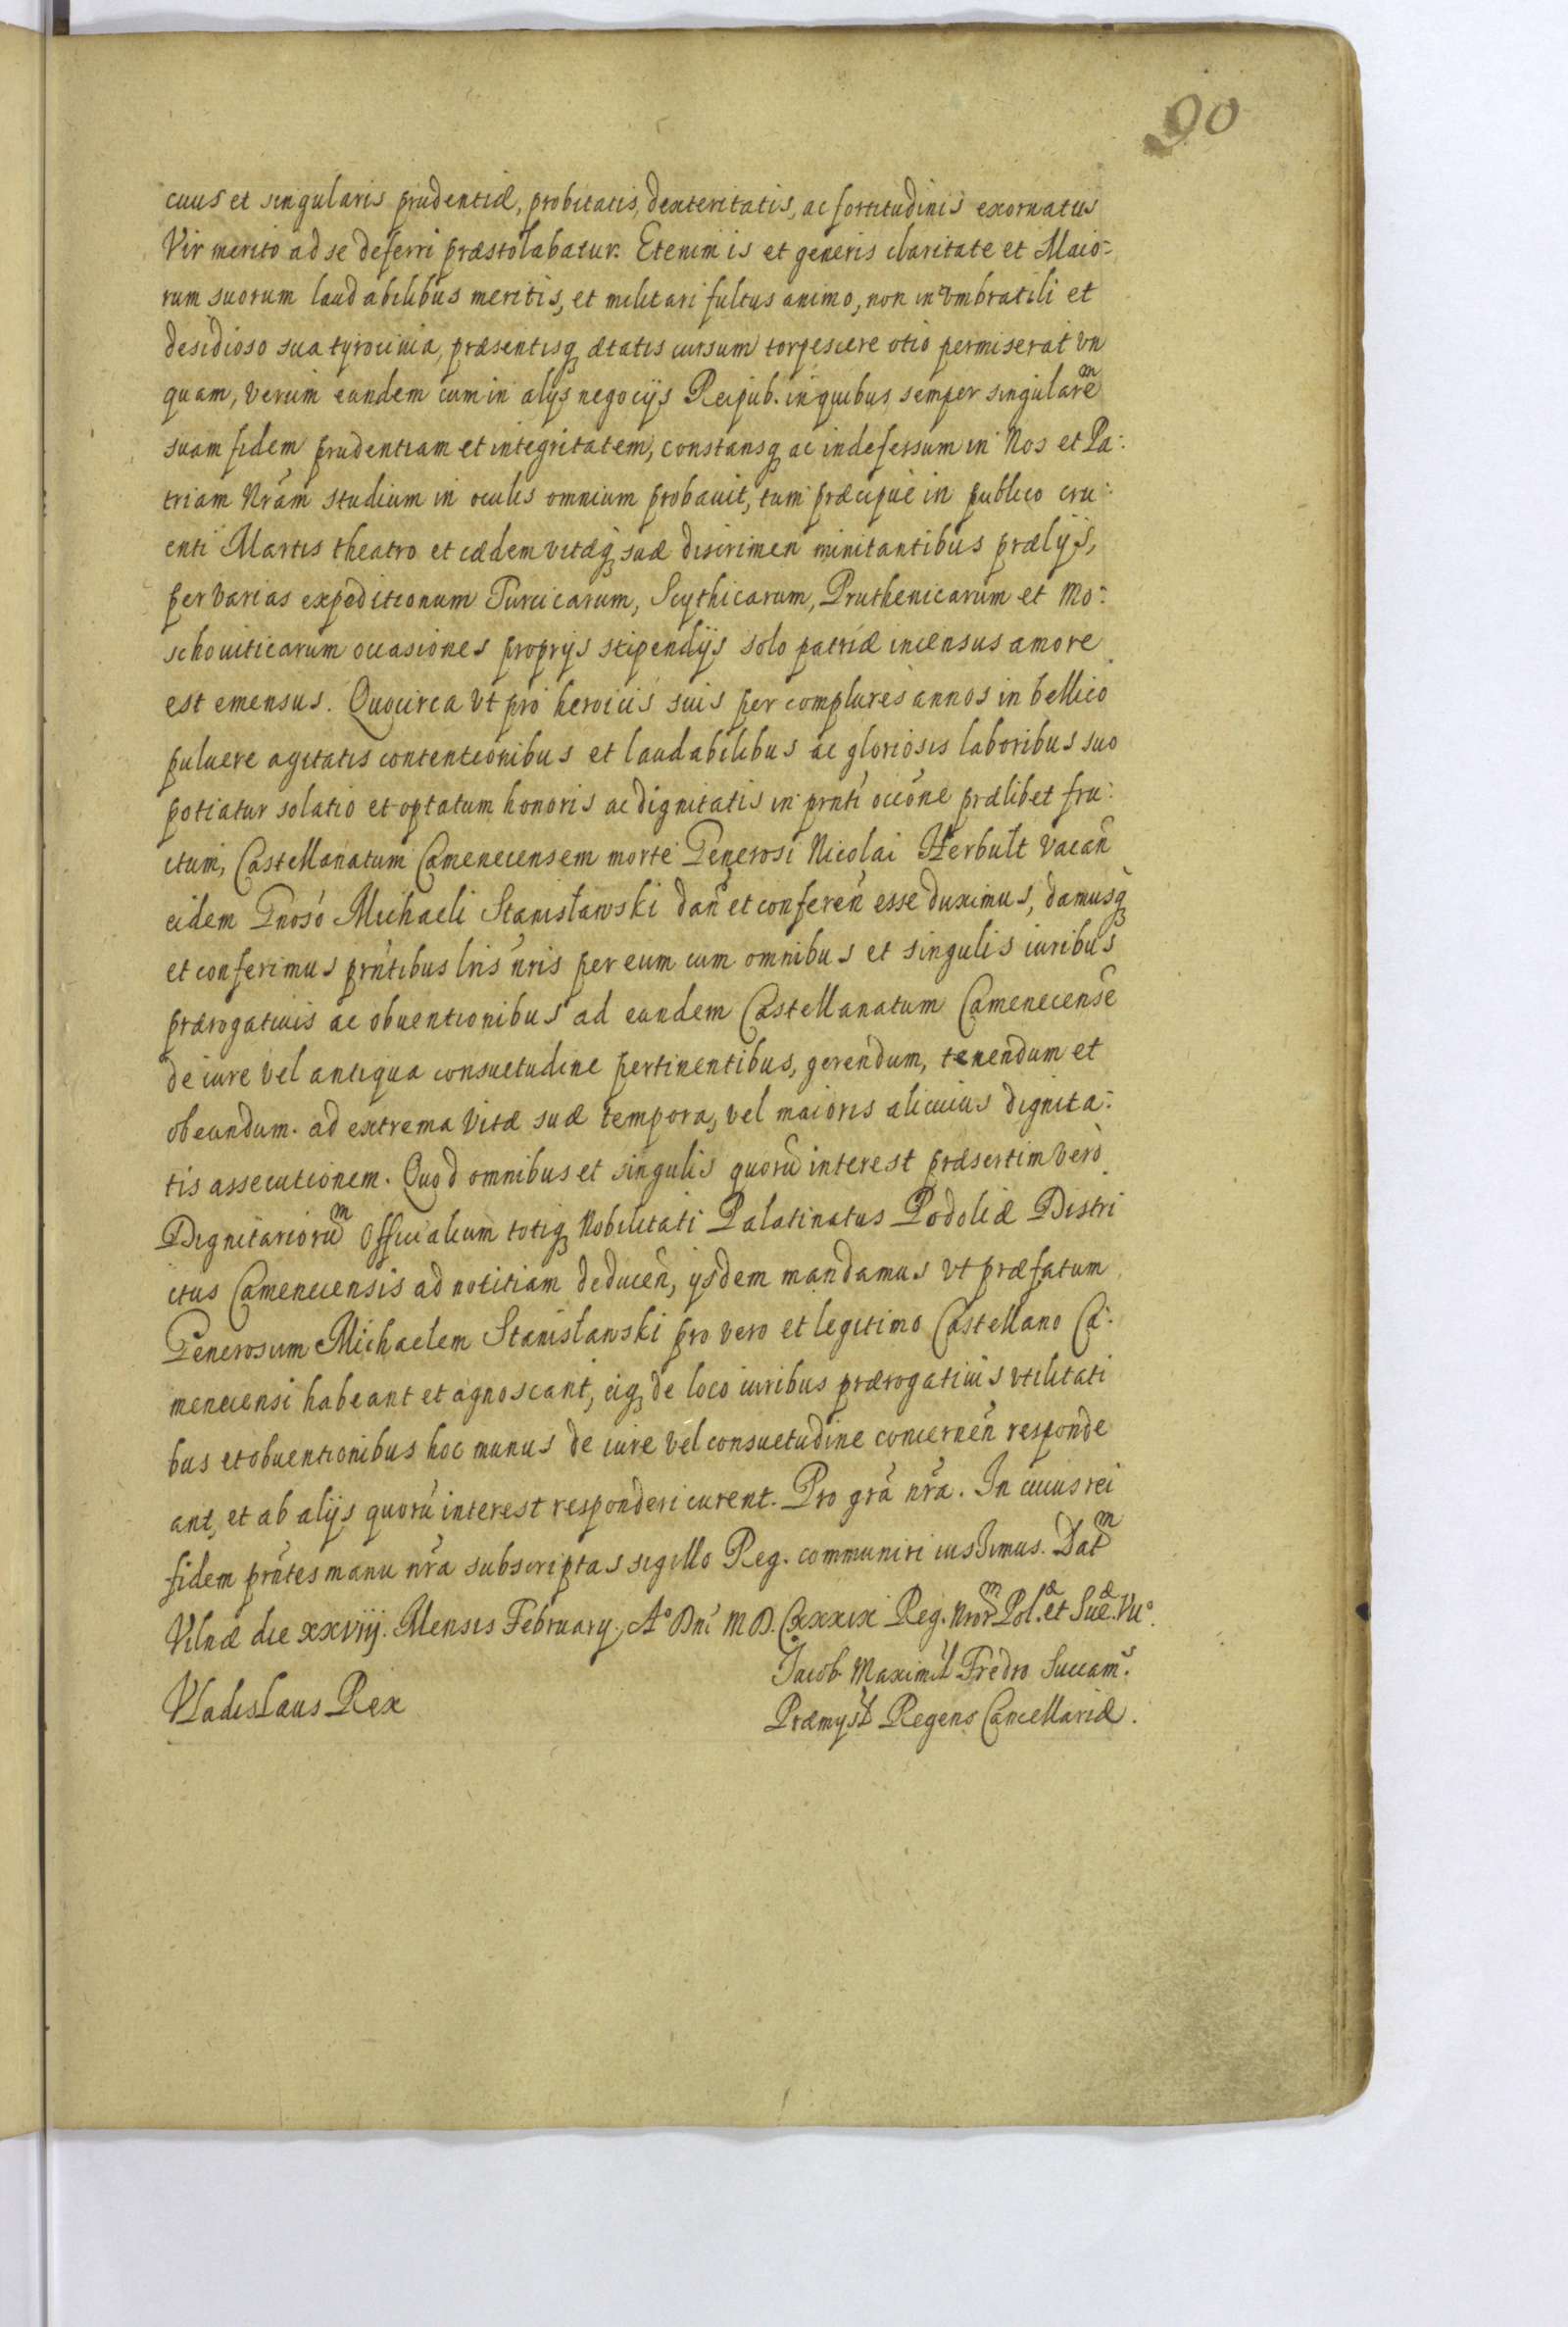 90
cuus et singularis prudentiæ, probitatis, dexteritatis, ac fortitudinis exornatus
Vir merito ad se deferri præstolabatur. Etenim is et generis claritate et Maio-
rum suorum laudabilibus meritis, et militari fultus animo, non in vmbratili et
desidioso sua tyrocinia, præsentisq ætatis cursum torpescere otio permiserat vn
quam, verum eundem cum in alijs negocijs Reipub. in quibus semper singularem
suam fidem prudentiam et integritatem, constansq ac indefessum in Nos et Pa:
triam Nram studium in oculis omnium probauit, tum præcipuè in publico cru:
enti Martis theatro et cædem vitæq suæ discrimen minitantibus prælijs,
per varias expeditionum Turcicarum, Scythicarum, Pruthenicarum et Mo:
schouiticarum occasiones proprijs stipendijs solo patriæ incensus amore
est emensus. Quocirca vt pro heroicis suis per complures annos in bellico
puluere agitatis contentionibus et laudabilibus ac gloriosis laboribus suo
potiatur solatio et optatum honoris ac dignitatis in prnti occone prælibet fru:
ctum, Castellanatum Camenecensem morte Generosi Nicolai Herbult vacan
eidem Gnoso Michaeli Stanisławski dan et conferen esse duximus, damusq
et conferimus prntibus lris nris per eum cum omnibus et singulis iuribus
prærogatiuis ac obuentionibus ad eundem Castellanatum Camenecense
de iure vel antiqua consuetudine pertinentibus, gerendum, tenendum et
obeundum. ad extrema vitæ suæ tempora, vel maioris alicuius dignita:
tis assecutionem. Quod omnibus et singulis quorũ interest præsertim verò
Dignitariorũm Officialium totiq Nobilitati Palatinatus Podoliæ Distri
ctus Camenecensis ad notitiam deducen, ijsdem mandamus vt præfatum
Generosum Michaelem Stanisławski pro vero et legitimo Castellano Ca:
menecensi habeant et agnoscant, eiq de loco iuribus prærogatiuis vtilitati
bus et obuentionibus hoc munus de iure vel consuetudine concernen responde
ant, et ab alijs quorũ interest responderi curent. Pro gra nra. In cuius rei
fidem prntes manu nra subscriptas sigillo Reg. communiri iussimus. Datm
Vilnæ die xxviij. Mensis February. Aº Dni M D. Cxxxix Reg. Nrorm Pol.æ et Sueæ. Vuº.
Jacob Maximil Fredro Succams.
Vladislaus Rex
Præmysl Regens Cancellariæ.